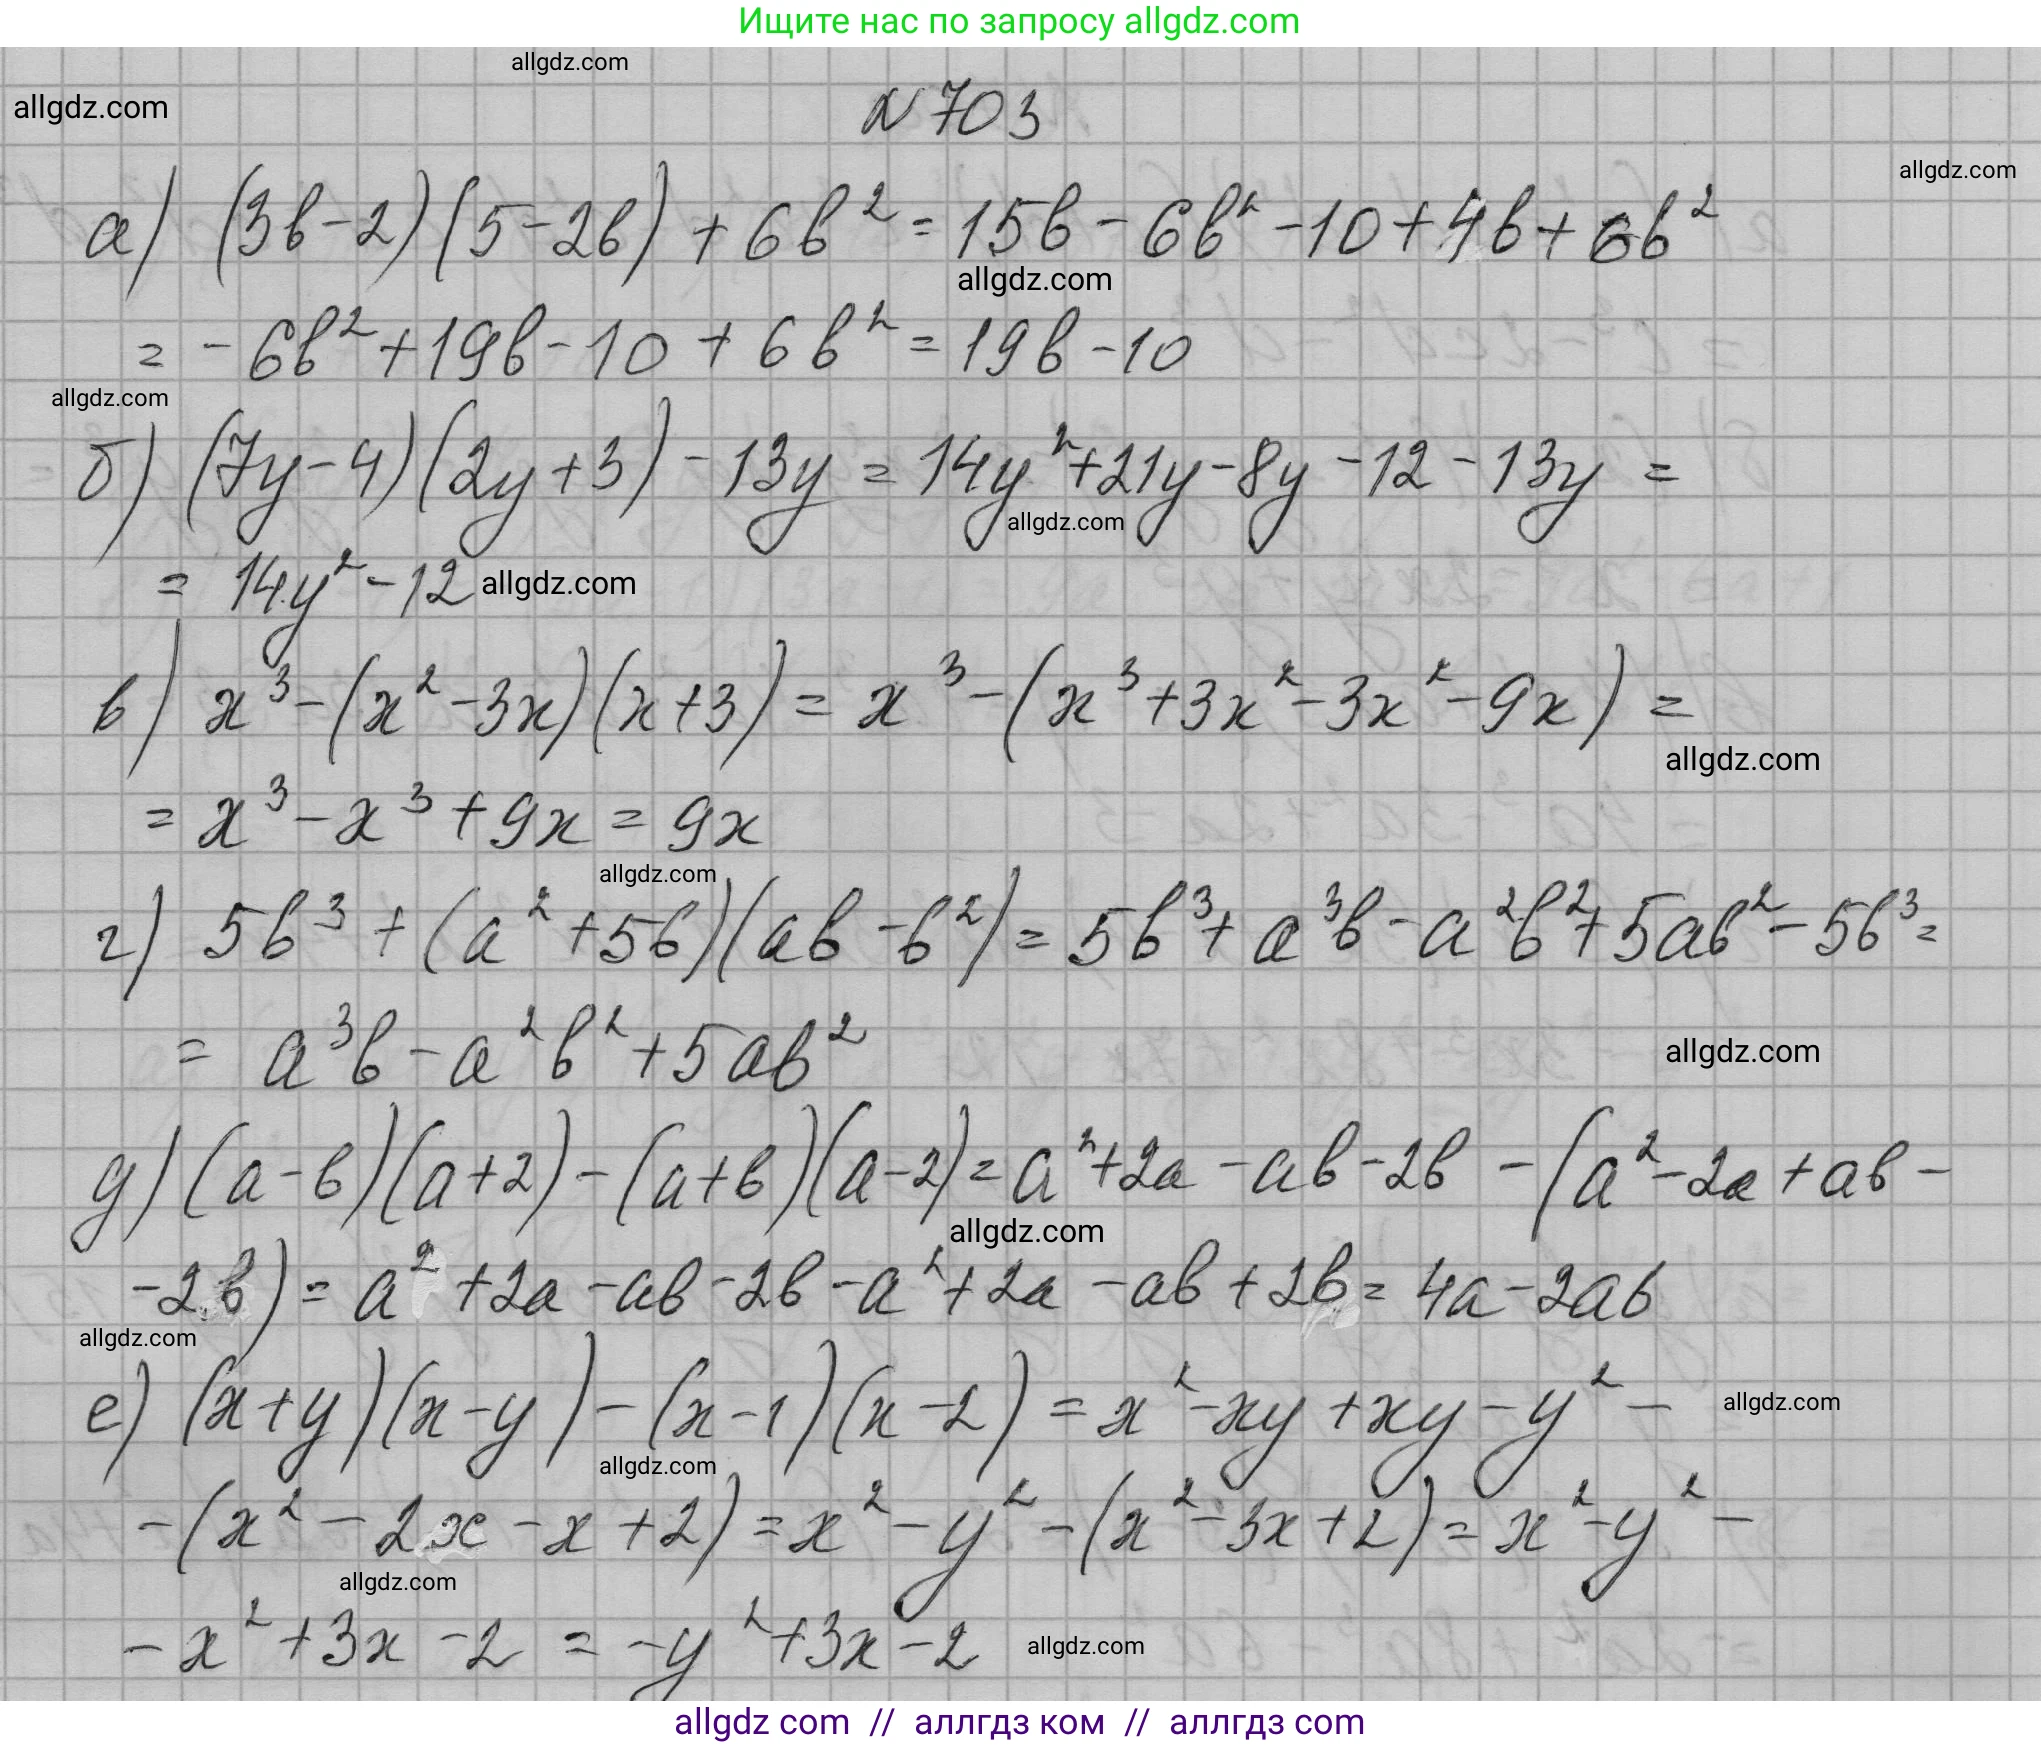 Ищите нас по запросу allgdz.com
allgdz.com
allgdz.com
№ 703
allgdz.com
а) (3b-2)(5-2b)+6b²=15b-6b²-10+4b+6b²
allgdz.com
= -6b²+19b-10+6b²=19b-10
allgdz.com
б) (7y-4)(2y+3)-13y=14y²+21y-8y-12-13y=
allgdz.com
= 14y²-12
allgdz.com
в) x³-(x²-3x)(x+3)=x³-(x³+3x²-3x²-9x)=
allgdz.com
= x³-x³+9x=9x
allgdz.com
г) 5b³+(a²+5b)(ab-b²)=5b³+a³b-a²b²+5ab²-5b³=
= a³b-a²b²+5ab²
allgdz.com
д) (a-b)(a+2)-(a+b)(a-2)=a²+2a-ab-2b-(a²-2a+ab-
allgdz.com
-2b)=a²+2a-ab-2b-a²+2a-ab+2b=4a-2ab
allgdz.com
е) (x+y)(x-y)-(x-1)(x-2)=x²-xy+xy-y²-
allgdz.com
allgdz.com
-(x²-2x-x+2)=x²-y²-(x²-3x+2)=x²-y²-
allgdz.com
-x²+3x-2=-y²+3x-2
allgdz.com
allgdz com // аллгдз ком // аллгдз com